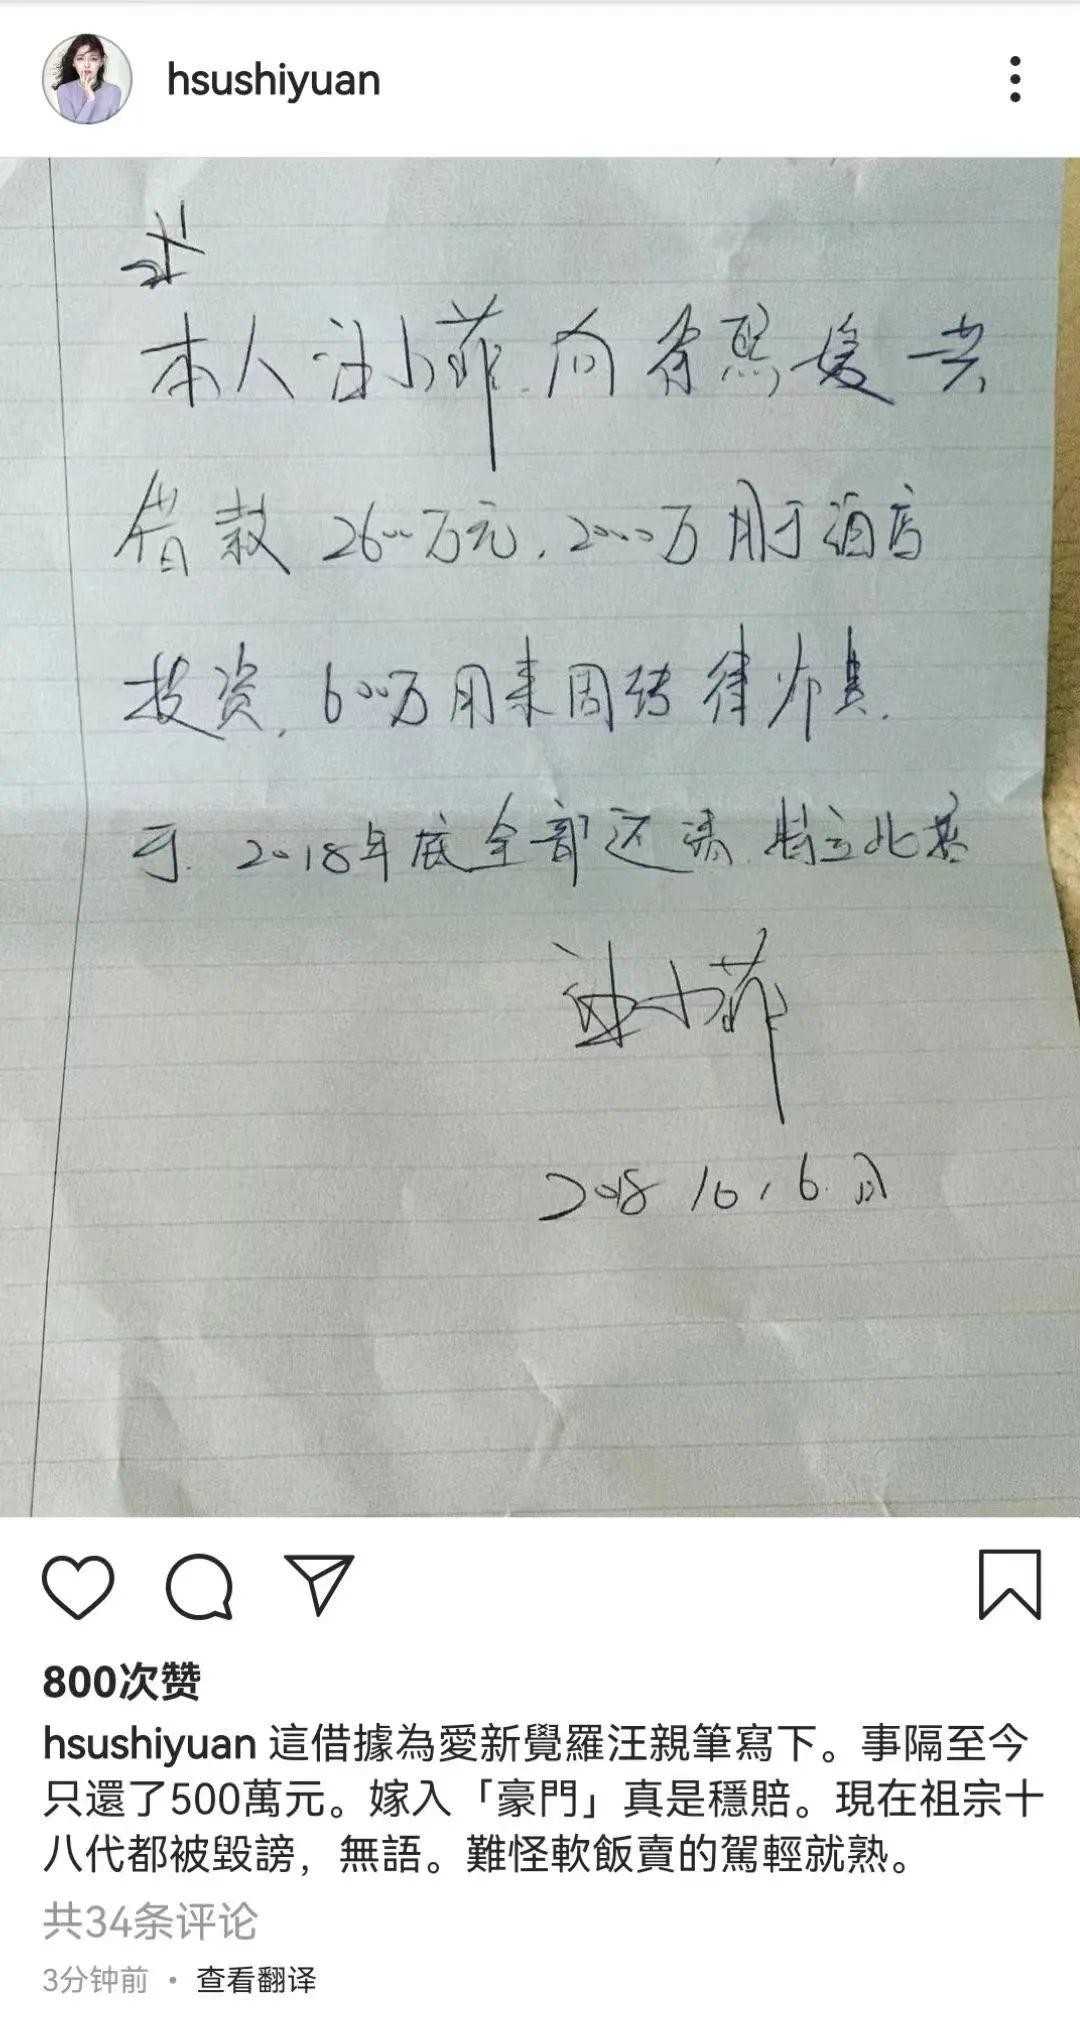 hsushiyuan
本人汪小菲向徐熙媛共
借款2600万元,2000万用于酒店
投资,600万用来周转律师费.
于.2018年底全部还清.特立此据
汪小菲
2018 10,6.
800次赞
hsushiyuan 這借據為愛新覺羅汪親筆寫下。事隔至今
只還了500萬元。嫁入「豪門」真是穩賠。現在祖宗十
八代都被毀謗，無語。難怪軟飯賣的駕輕就熟。
共34条评论
3分钟前 · 查看翻译